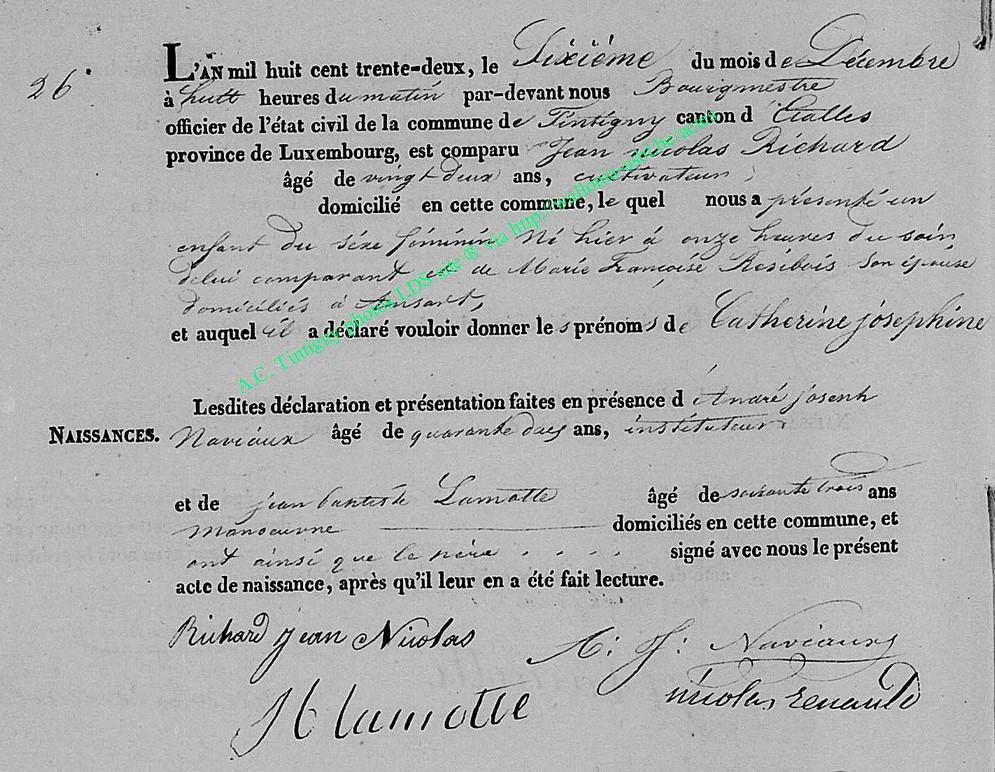 26.
L'AN mil huit cent trente-deux, le Sixième du mois de Décembre
à huit heures du matin par-devant nous Bourgmestre
officier de l'état civil de la commune de Tintigny canton d'Etalles
province de Luxembourg, est comparu Jean nicolas Richard
âgé de vingt deux ans, cultivateur,
domicilié en cette commune, le quel nous a présenté un
enfant du séxe féminin Né hier à onze heures du soir
delui comparant et de Marie Françoise Resibois son épouse
domiciliés à Ansart,
et auquel il a déclaré vouloir donner les prénoms de Catherine joséphine
Lesdites déclaration et présentation faites en présence d'André joseph
NAISSANCES. Naviaux âgé de quarante ans, instituteur
et de jean baptiste Lamotte âgé de soixante trois ans
manoeuvre domiciliés en cette commune, et
ont ainsi que le père signé avec nous le présent
acte de naissance, après qu'il leur en a été fait lecture.
Richard jean Nicolas A: J: Naviaux
lamotte nicolas renauld
A.C. Tintigny photos LDS site ® via http://wallonia-asbl.be/actes